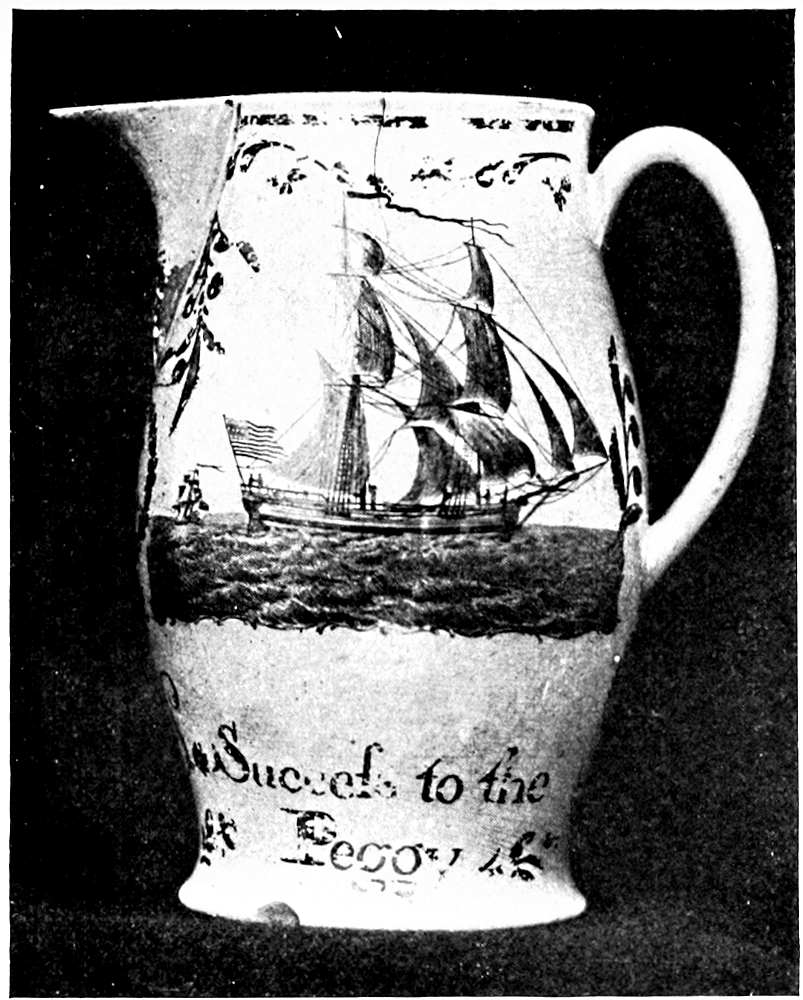 Succeſs to the
Peggy